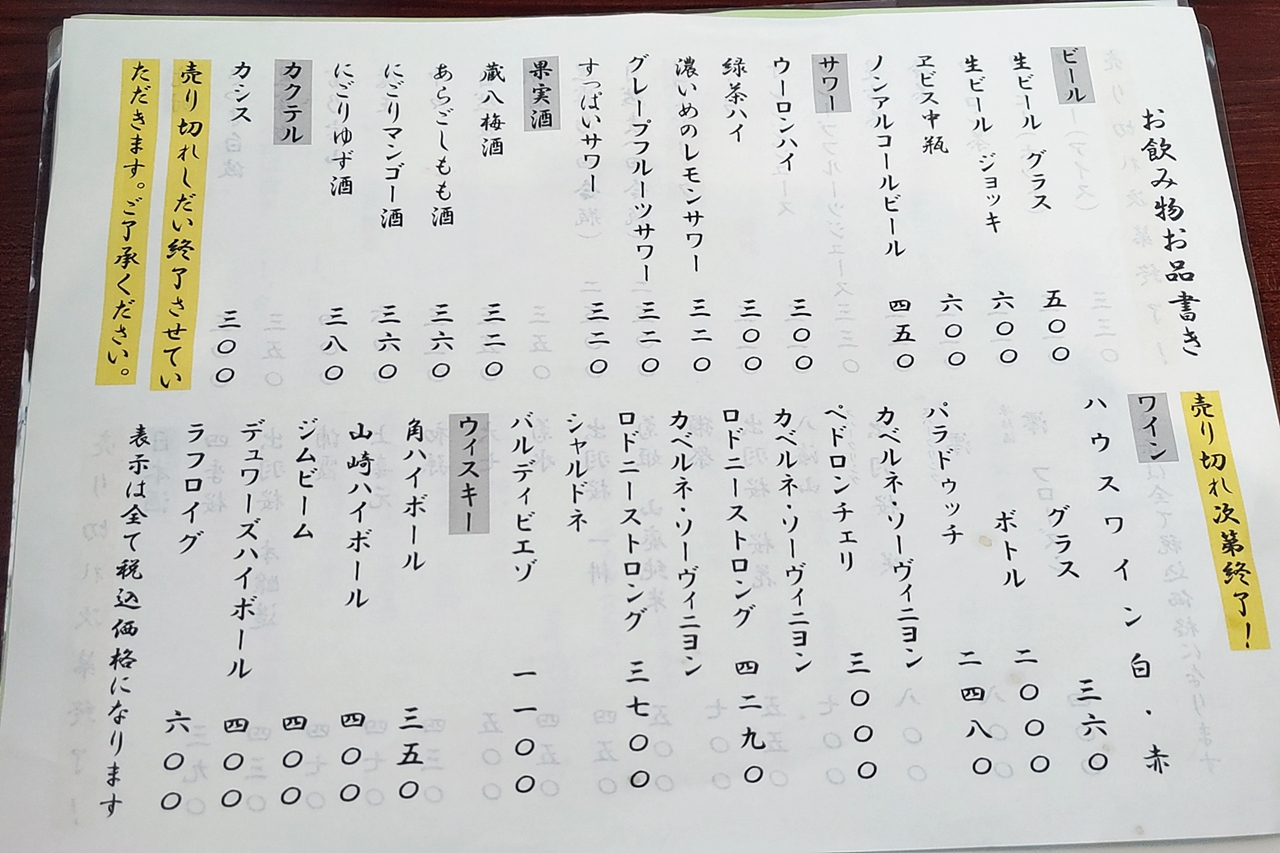 お飲み物お品書き
ビール
生ビール グラス 五〇〇
生ビール ジョッキ 六〇〇
ヱビス中瓶 六〇〇
ノンアルコールビール 四五〇
サワー
ウーロンハイ 三〇〇
緑茶ハイ 三〇〇
濃いめのレモンサワー 三二〇
グレープフルーツサワー 三二〇
すっぱいサワー 三二〇
果実酒
蔵八梅酒 三二〇
あらごしもも酒 三六〇
にごりマンゴー酒 三六〇
にごりゆず酒 三八〇
カクテル
カシス 三〇〇
売り切れしだい終了させてい
ただきます。ご了承ください。
売り切れ次第終了！
ワイン
ハウスワイン 白・赤
グラス 三六〇
ボトル 二〇〇〇
パラドゥッチ 二四八〇
カベルネ・ソーヴィニヨン
ペドロンチェリ 三〇〇〇
カベルネ・ソーヴィニヨン
ロドニーストロング 四二九〇
カベルネ・ソーヴィニヨン
ロドニーストロング 三七〇〇
シャルドネ
バルディビエゾ 一一〇〇
ウィスキー
角ハイボール 三五〇
山崎ハイボール 四〇〇
ジムビーム 四〇〇
デュワーズハイボール 四〇〇
ラフロイグ 六〇〇
表示は全て税込価格になります